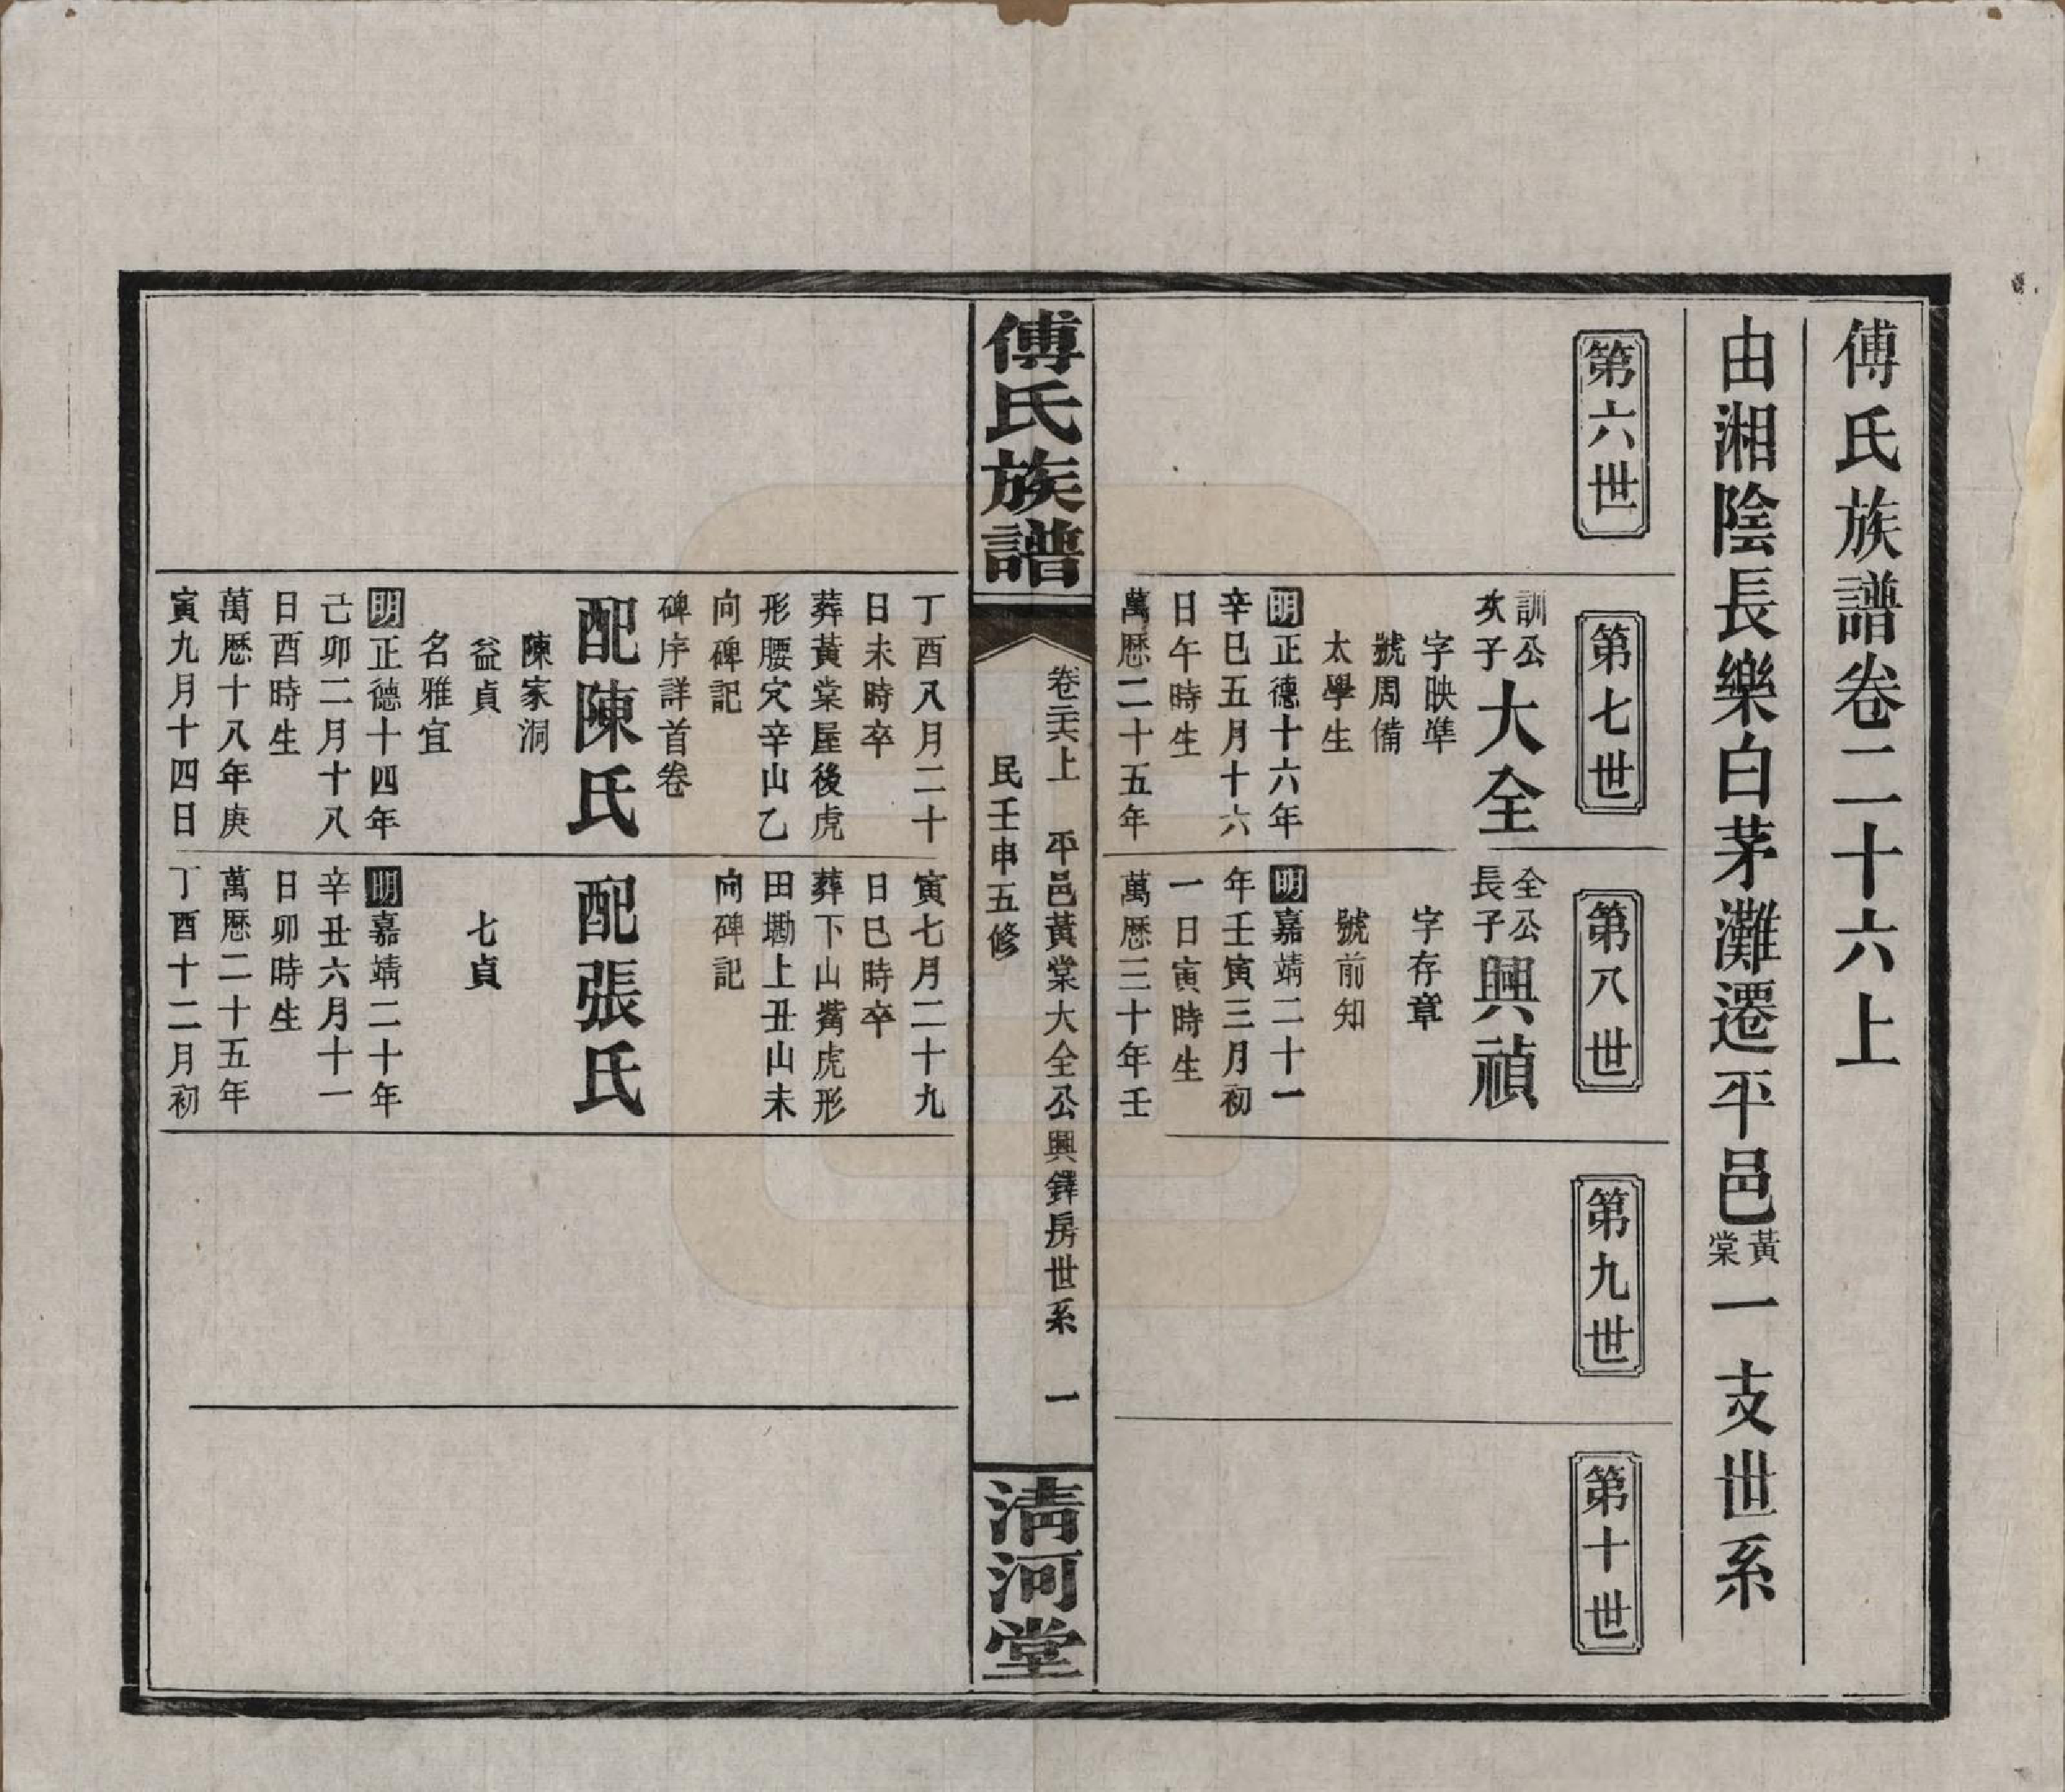 傅氏族譜卷二十六上
由湘陰長樂白茅灘遷平邑黃棠一支世系
第六世
第七世
第八世
第九世
第十世
訓公次子大全
字映準
號周備
太學生
明正德十六年
辛巳五月十六
日午時生
萬歷二十五年
全公長子興禎
字存章
號前知
明嘉靖二十一
年壬寅三月初
一日寅時生
萬歷三十年壬
傅氏族譜
卷二十六上 平邑黃棠大全公興鐸房世系 一
民壬申五修
清河堂
丁酉八月二十
日未時卒
葬黃棠屋後虎
形腰穴辛山乙
向碑記
碑序詳首卷
配陳氏
陳家洞
益貞
名雅宜
明正德十四年
己卯二月十八
日酉時生
萬歷十八年庚
寅九月十四日
寅七月二十九
日巳時卒
葬下山觜虎形
田墈上丑山未
向碑記
配張氏
七貞
明嘉靖二十年
辛丑六月十一
日卯時生
萬歷二十五年
丁酉十二月初